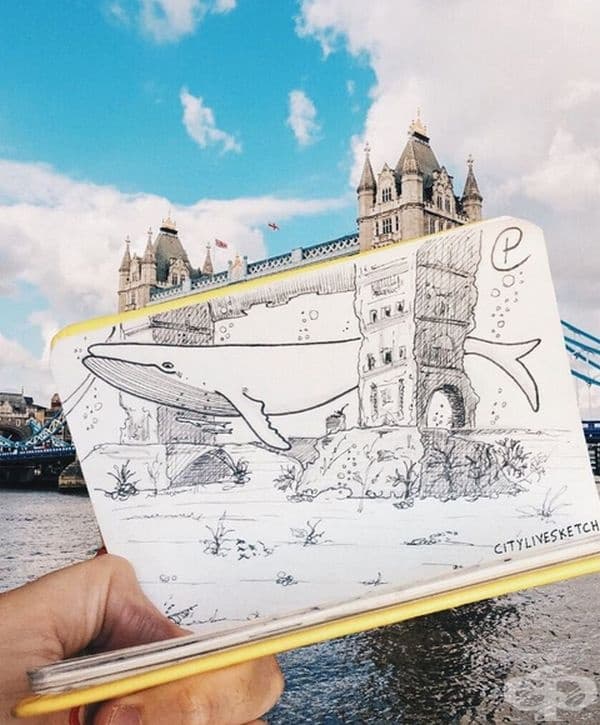 P
CITYLIVESKETCH